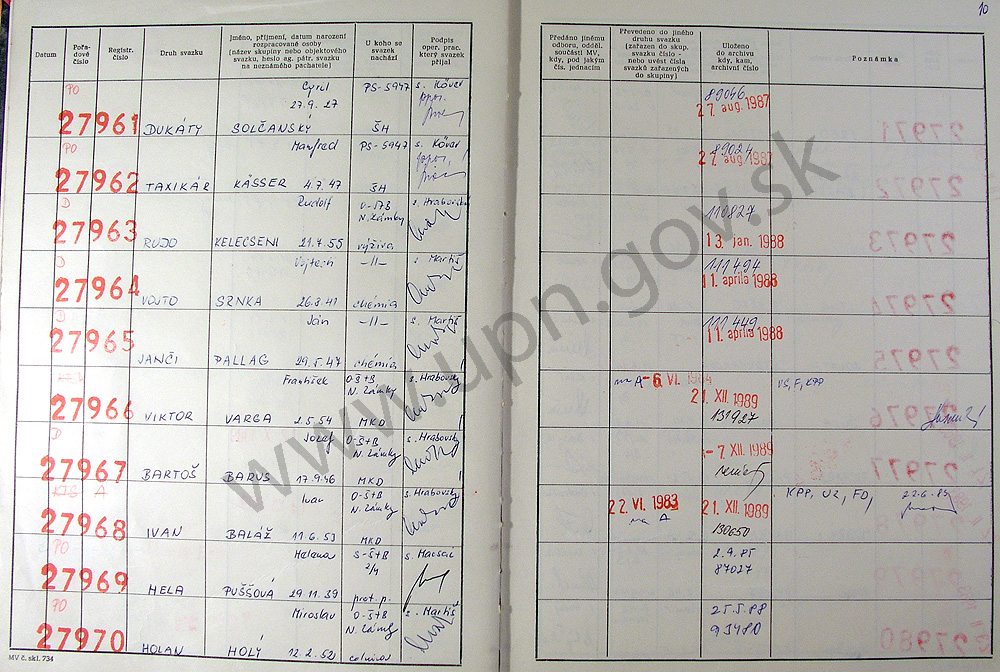 10
Datum
Pořa-
dové
číslo
Registr.
číslo
Druh svazku
Jméno, příjmení, datum narození
rozpracované osoby
(název skupiny nebo objektového
svazku, heslo ag. pátr. svazku
na neznámého pachatele)
U koho se
svazek
nachází
Podpis
oper. prac.
který svazek
přijal
Předáno jinému
odboru, odděl.
součásti MV,
kdy, pod jakým
čís. jednacím
Převedeno do jiného
druhu svazku
(zařazen do skup.
svazku číslo -
nebo uvést čísla
svazků zařazených
do skupiny)
Uloženo
do archivu
kdy, kam,
archivní číslo
Poznámka
PO Cyril PS-5947 s. Kövar 89046
27.9.27 27. aug. 1987
27961 DUKÁTY SOLČANSKÝ ŠH
PO Manfred PS-5947 s. Kövar 89024
27. aug. 1987
27962 TAXIKÁR KÄSSER 4.7.47 ŠH
D Rudolf s. Hrabovský 110827
N. Zámky
27963 RUDO KELECSÉNI 21.7.55 výživa 13. jan. 1988
D Vojtech -||- s. Martiš 111494
27964 VOJTO SRNKA 26.8.41 chémia 11. apríla 1988
D Ján -||- s. Martiš 111449
27965 JANČI PALLAG 29.5.47 chémia 11. apríla 1988
František O-Š+B s. Hrabovský na A -6. VI. VS, F, KPP
N. Zámky 21. XII. 1989
27966 VIKTOR VARGA 2.5.54 MKD 131927
D Jozef O-Š+B s. Hrabovský
N. Zámky -7. XII. 1989
27967 BARTOŠ BARUS 17.9.46 MKD
A Ivan O-Š+B s. Hrabovský KPP, UZ, FO,
N. Zámky 22. VI. 1983 21. XII. 1989
27968 IVAN BALÁŽ 11.6.53 MKD na A 130650
PO Helena S-Š+B s. Macsac 2.9.85
2/4 87027
27969 HELA PUŠŠOVÁ 29.11.39 prot. p.
PO Miroslav O-Š+B s. Martiš 25.5.88
N. Zámky 93480
27970 HOLAN HOLÝ 12.2.52
MV č. skl. 734
www.upn.gov.sk